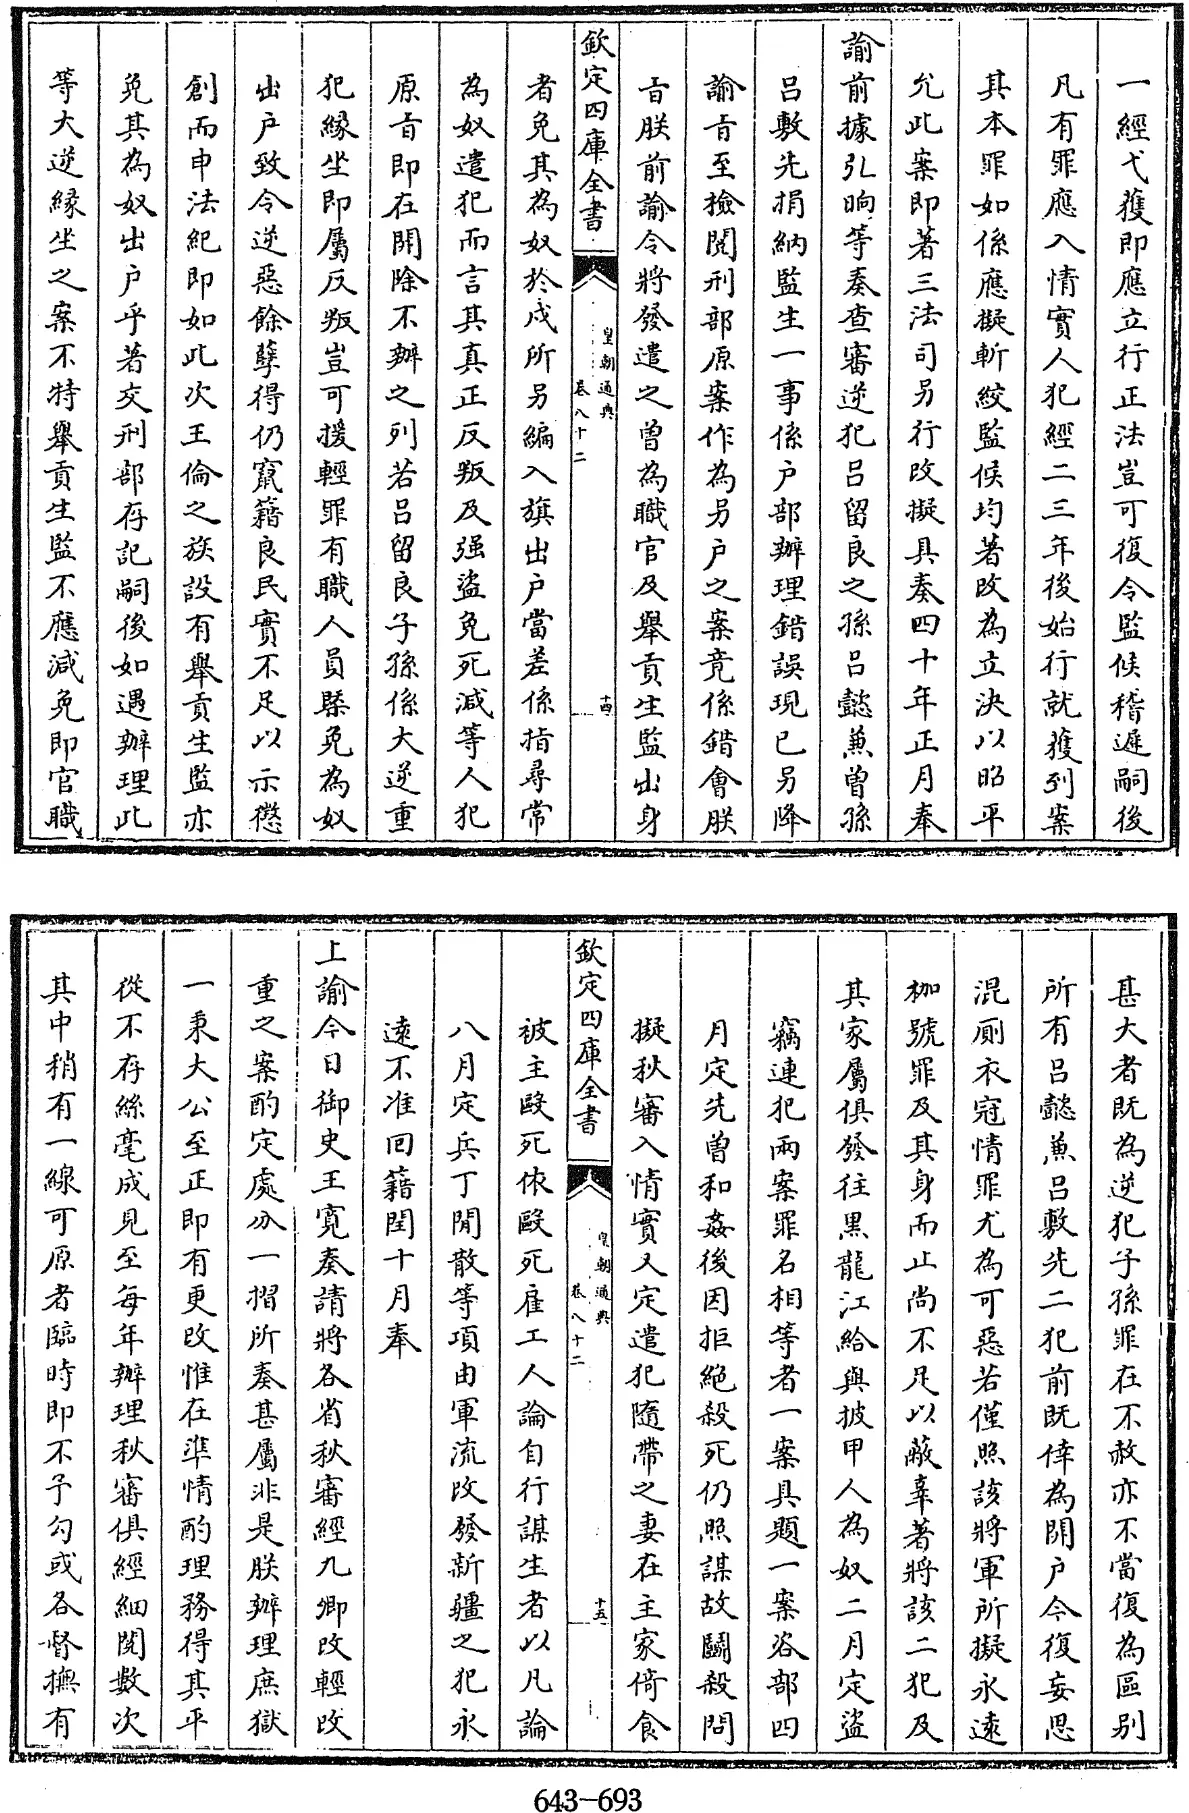 一經弋獲即應立行正法豈可復令監候稽遲嗣後
凡有罪應入情實人犯經二三年後始行就獲到案
其本罪如係應擬斬絞監候均著改為立決以昭平
允此案即著三法司另行改擬具奏四十年正月奉
諭前據弘晌等奏查審逆犯呂留良之孫呂懿兼曾孫
呂敷先捐納監生一事係户部辦理錯誤現已另降
諭㫖至檢閲刑部原案作為另户之案竟係錯會朕
㫖朕前諭令將發遣之曾為職官及舉貢生監出身
欽定四庫全書
皇朝通典
卷八十二
十四
者免其為奴於戍所另編入旗出户當差係指尋常
為奴遣犯而言其真正反叛及强盜免死減等人犯
原㫖即在開除不辦之列若呂留良子孫係大逆重
犯縁坐即屬反叛豈可援輕罪有職人員槩免為奴
出户致令逆惡餘孽得仍竄籍良民實不足以示懲
創而申法紀即如此次王倫之族設有舉貢生監亦
免其為奴出户乎著交刑部存記嗣後如遇辦理此
等大逆縁坐之案不特舉貢生監不應減免即官職
甚大者既為逆犯子孫罪在不赦亦不當復為區别
所有呂懿兼呂敷先二犯前既倖為開户今復妄思
混厠衣冠情罪尤為可惡若僅照該將軍所擬永遠
枷號罪及其身而止尚不足以蔽辜著將該二犯及
其家屬俱發往黒龍江給與披甲人為奴二月定盜
竊連犯兩案罪名相等者一案具題一案咨部四
月定先曾和姦後因拒絶殺死仍照謀故鬭殺問
擬秋審入情實又定遣犯隨帶之妻在主家倚食
欽定四庫全書
皇朝通典
卷八十二
十五
被主毆死依毆死雇工人論自行謀生者以凡論
八月定兵丁閒散等項由軍流改發新疆之犯永
遠不准回籍閏十月奉
上諭今日御史王寛奏請將各省秋審經九卿改輕改
重之案酌定處分一摺所奏甚屬非是朕辦理庶獄
一秉大公至正即有更改惟在凖情酌理務得其平
從不存絲毫成見至每年辦理秋審俱經細閲數次
其中稍有一線可原者臨時即不予勾或各督撫有
643-693